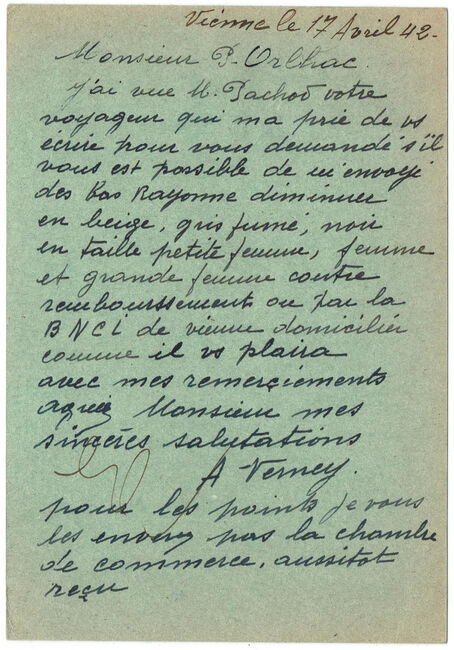 Vienne le 17 Avril 42-
Monsieur P. Orlhac.
j'ai vue M. Pachod votre
voyageur qui ma prié de vs
écrire pour vous demandé s'il
vous est possible de m'envoyé
des bas Rayonne diminuer
en beige, gris fumé, noir
en taille petite femme, femme
et grande femme contre
remboursement ou par la
BNCI de vienne domicilier
comme il vs plaira
avec mes remerciements
agréez Monsieur mes
sincères salutations
A Verney.
pour les points je vous
les envoy pas la chambre
de commerce, aussitot
reçu